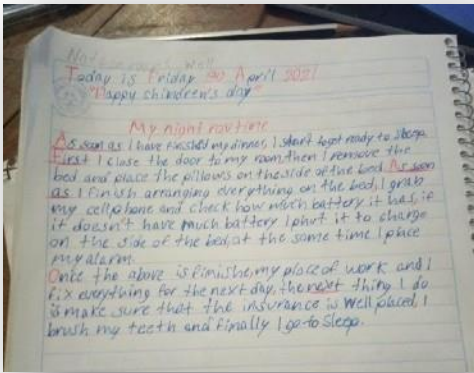 Today is Friday 30 April 2021
"Happy shindreen's day"
My night routine
As soon as I have finished my dinner, I start to get ready to sleep.
First I close the door to my room then I remove the
bed and place the pillows on the side of the bed. As soon
as I finish arranging everything on the bed, I grab
my cellphone and check how much battery it has, if
it doesn't have much battery I put it to charge
on the side of the bed, at the same time I place
my alarm.
Once the above is finishe, my place of work and I
fix everything for the next day, the next thing I do
is make sure that the insurance is well placed, I
brush my teeth and finally I go to sleep.